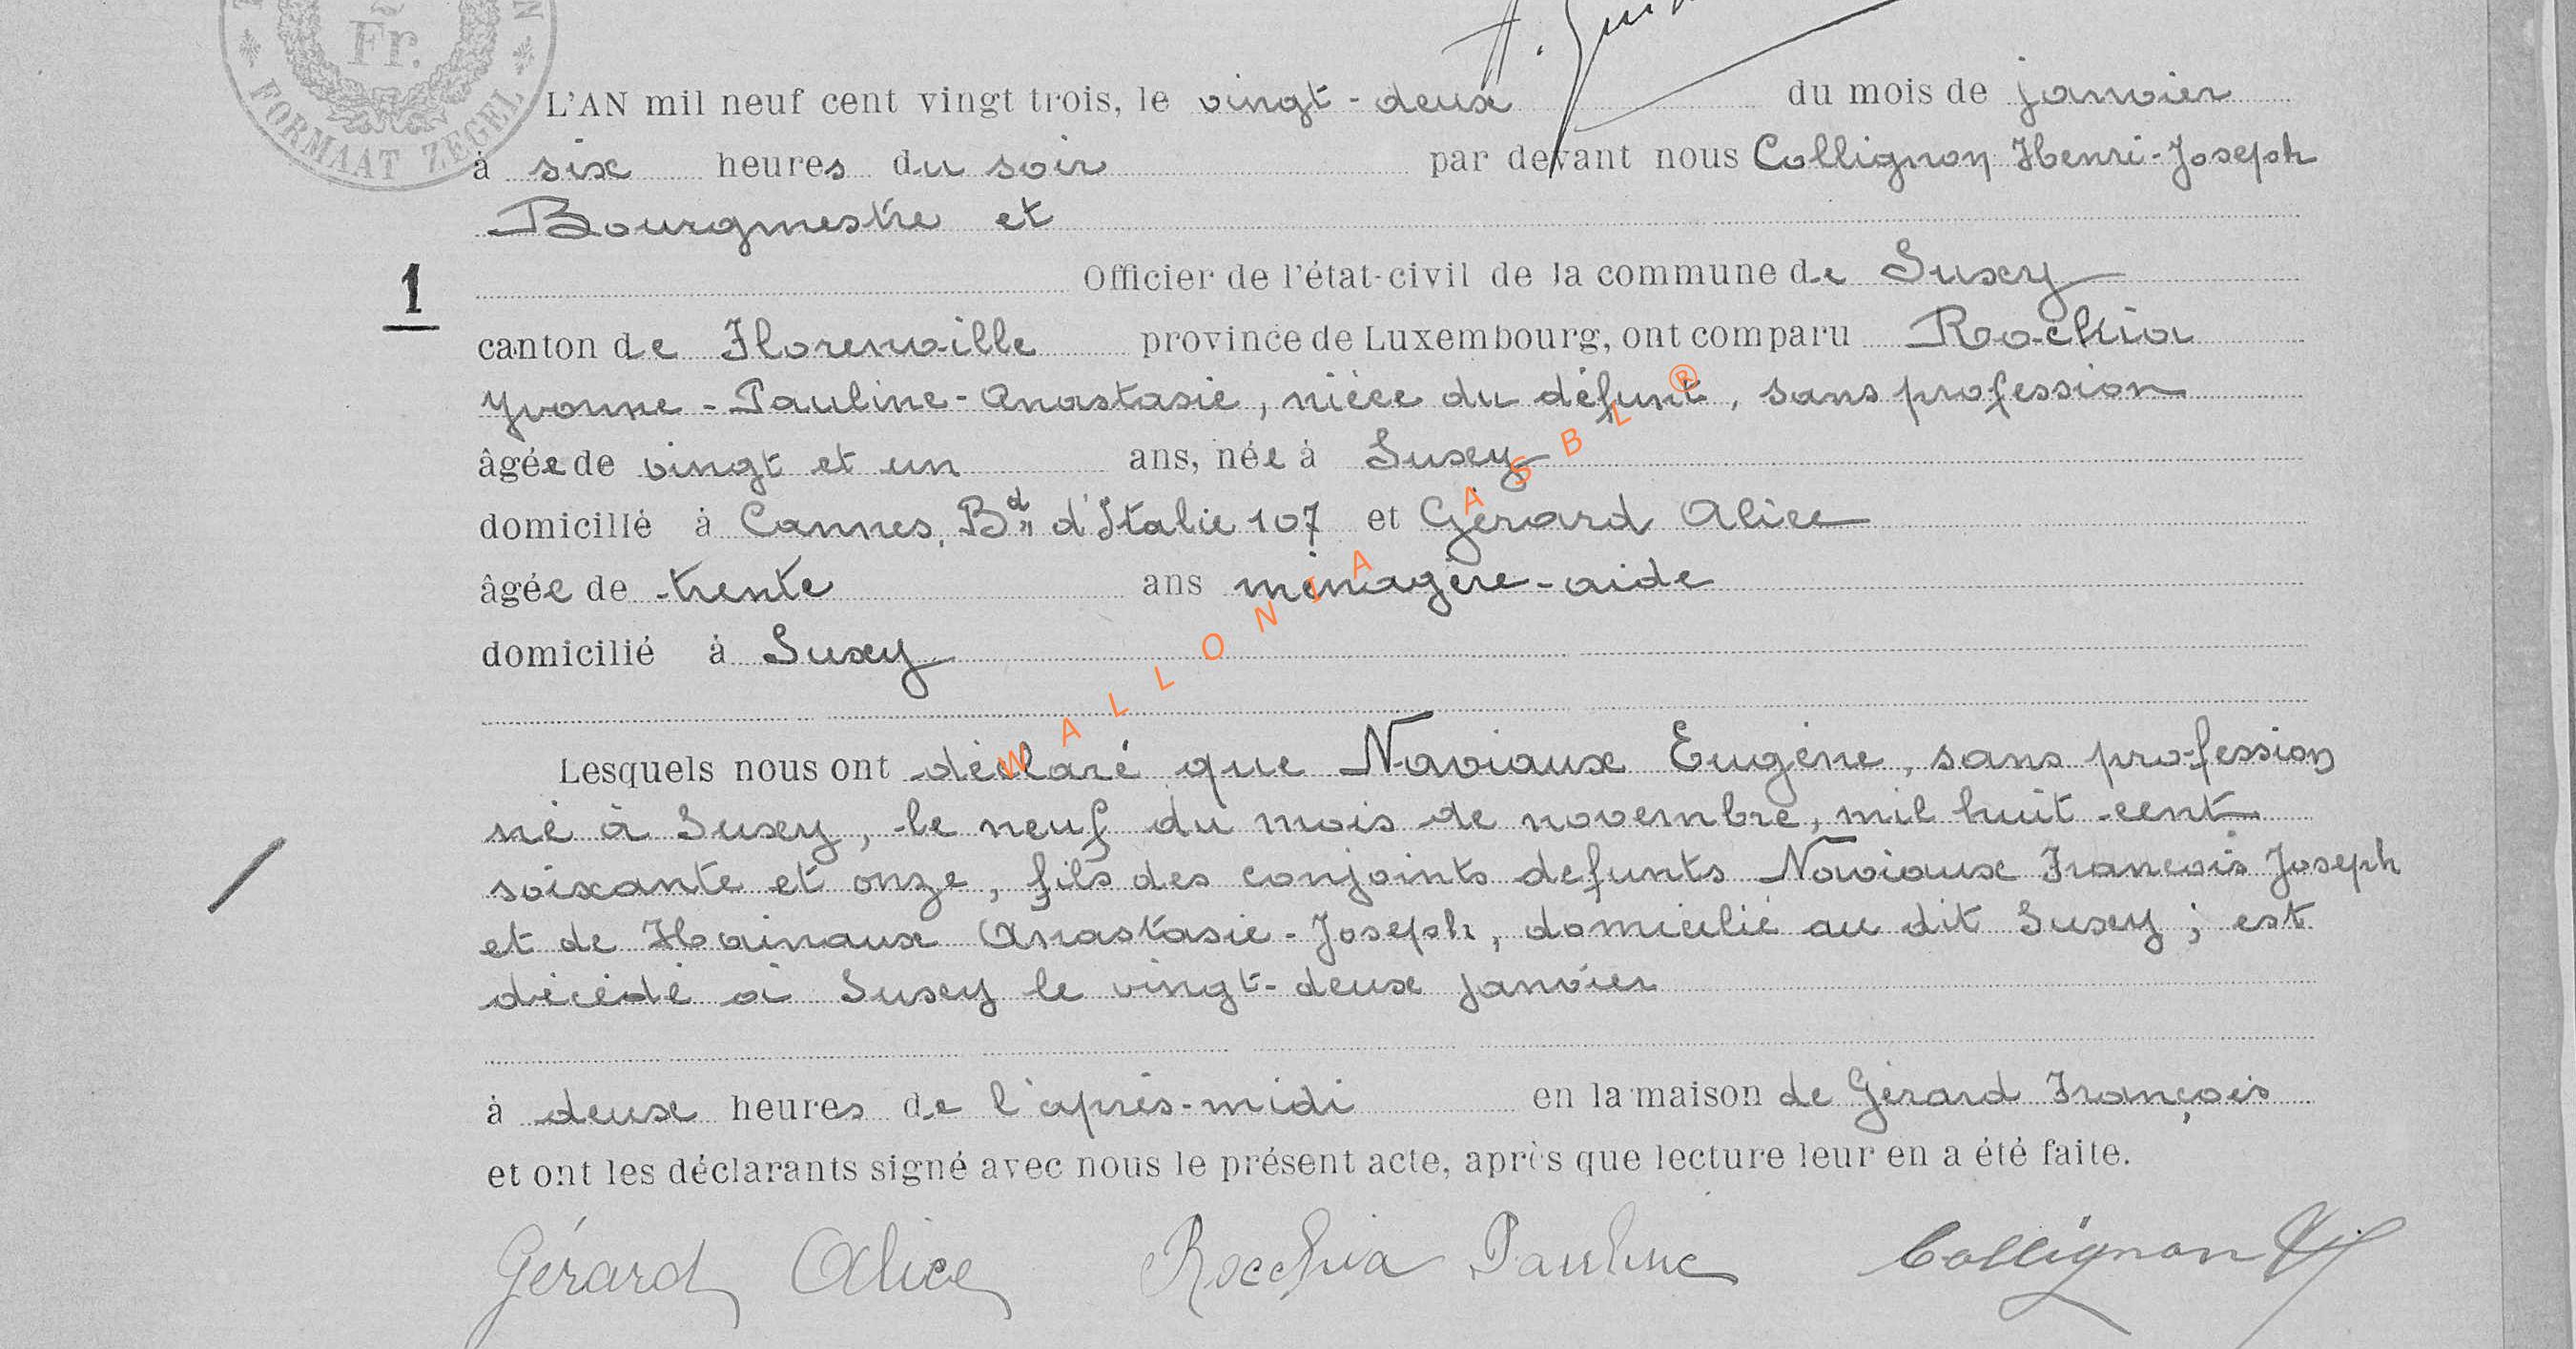 Fr.
FORMAAT ZEGEL
L'AN mil neuf cent vingt trois, le vingt-deux du mois de janvier
à six heures du soir par devant nous Collignon Henri-Joseph
Bourgmestre et
1
Officier de l'état-civil de la commune de Suxy
canton de Florenville province de Luxembourg, ont comparu Rochia
Yvonne-Pauline-Anastasie, nièce du défunt, sans profession
âgée de vingt et un ans, née à Suxy
domicilié à Cannes, Bd d'Italie 107 et Gérard Alice
âgée de trente ans ménagère-aide
domicilié à Suxy
Lesquels nous ont déclaré que Naviaux Eugène, sans profession
né à Suxy, le neuf du mois de novembre, mil huit cent
soixante et onze, fils des conjoints defunts Naviaux François Joseph
et de Hainaux Anastasie-Joseph, domicilié au dit Suxy ; est
décédé à Suxy le vingt-deux janvier
à deux heures de l'après-midi en la maison de Gérard François
et ont les déclarants signé avec nous le présent acte, après que lecture leur en a été faite.
Gérard Alice Rocchia Pauline Collignon
WALLONIA ASBL ®